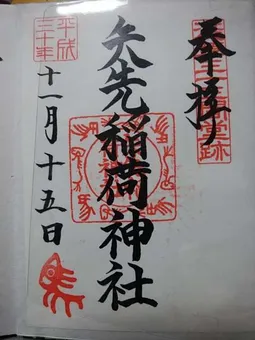 奉拝
矢先稲荷神社
平成
三十年
十一月十五日